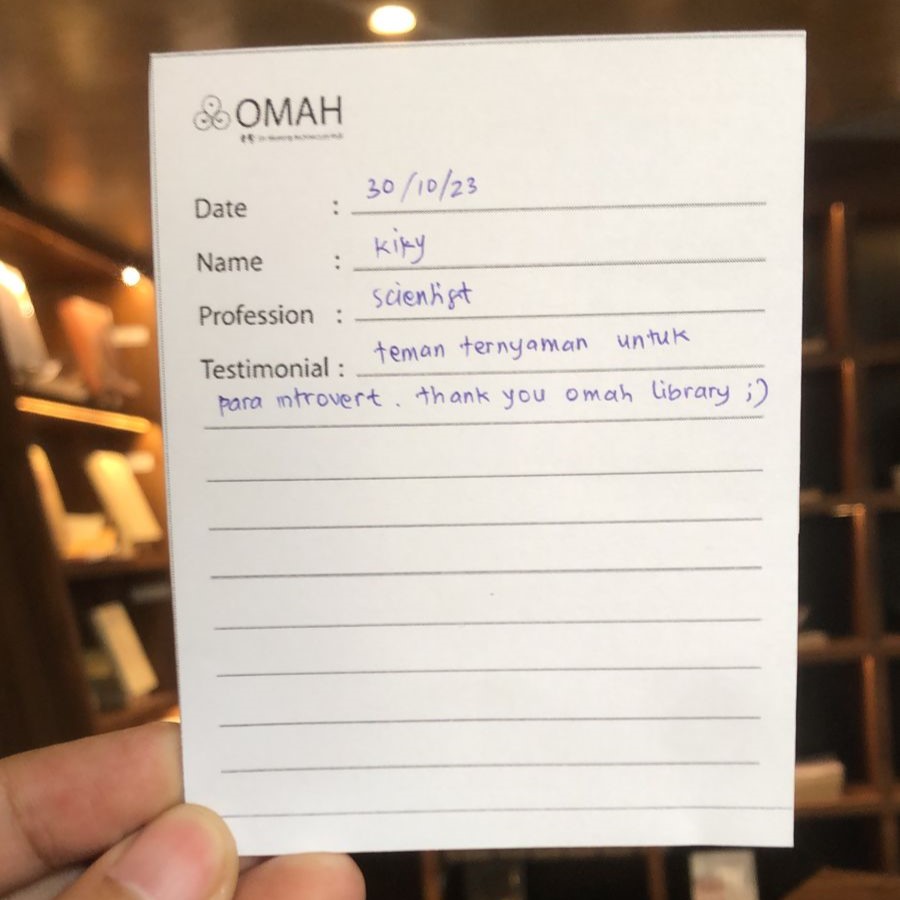 OMAH
Date : 30/10/23
Name : kiky
Profession : scientist
Testimonial : teman ternyaman untuk
para introvert. thank you omah library ;)